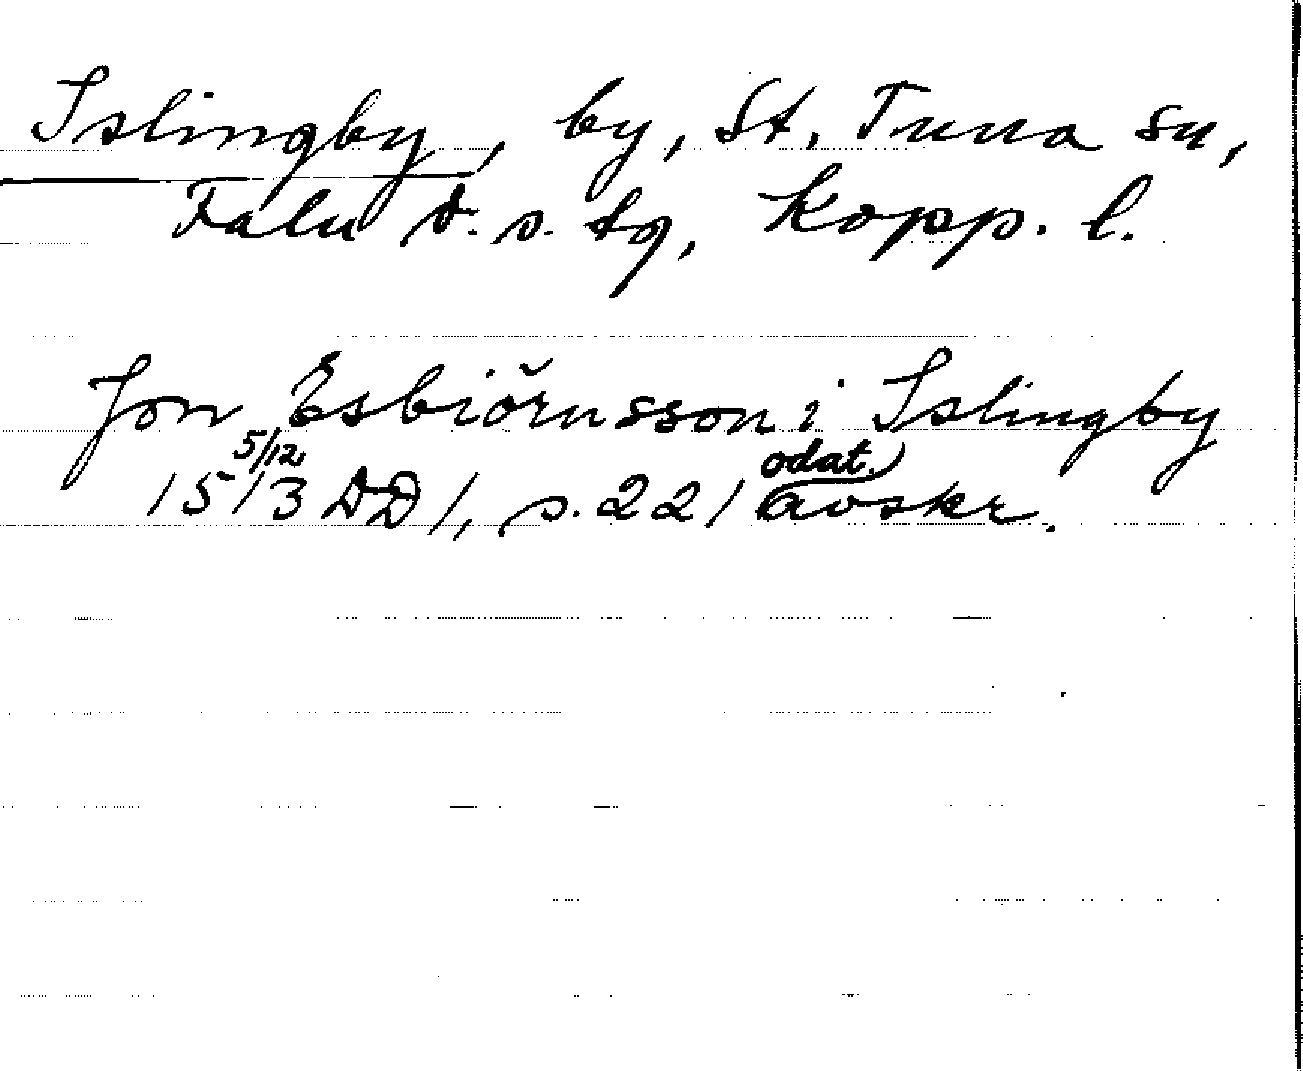 Islingby, by, St. Tuna sn,
Falu d. s. tg, Kopp. l.
Jon Esbiörnsson i Islingby
5/12 odat.
1513 DD 1, s. 221 avskr.